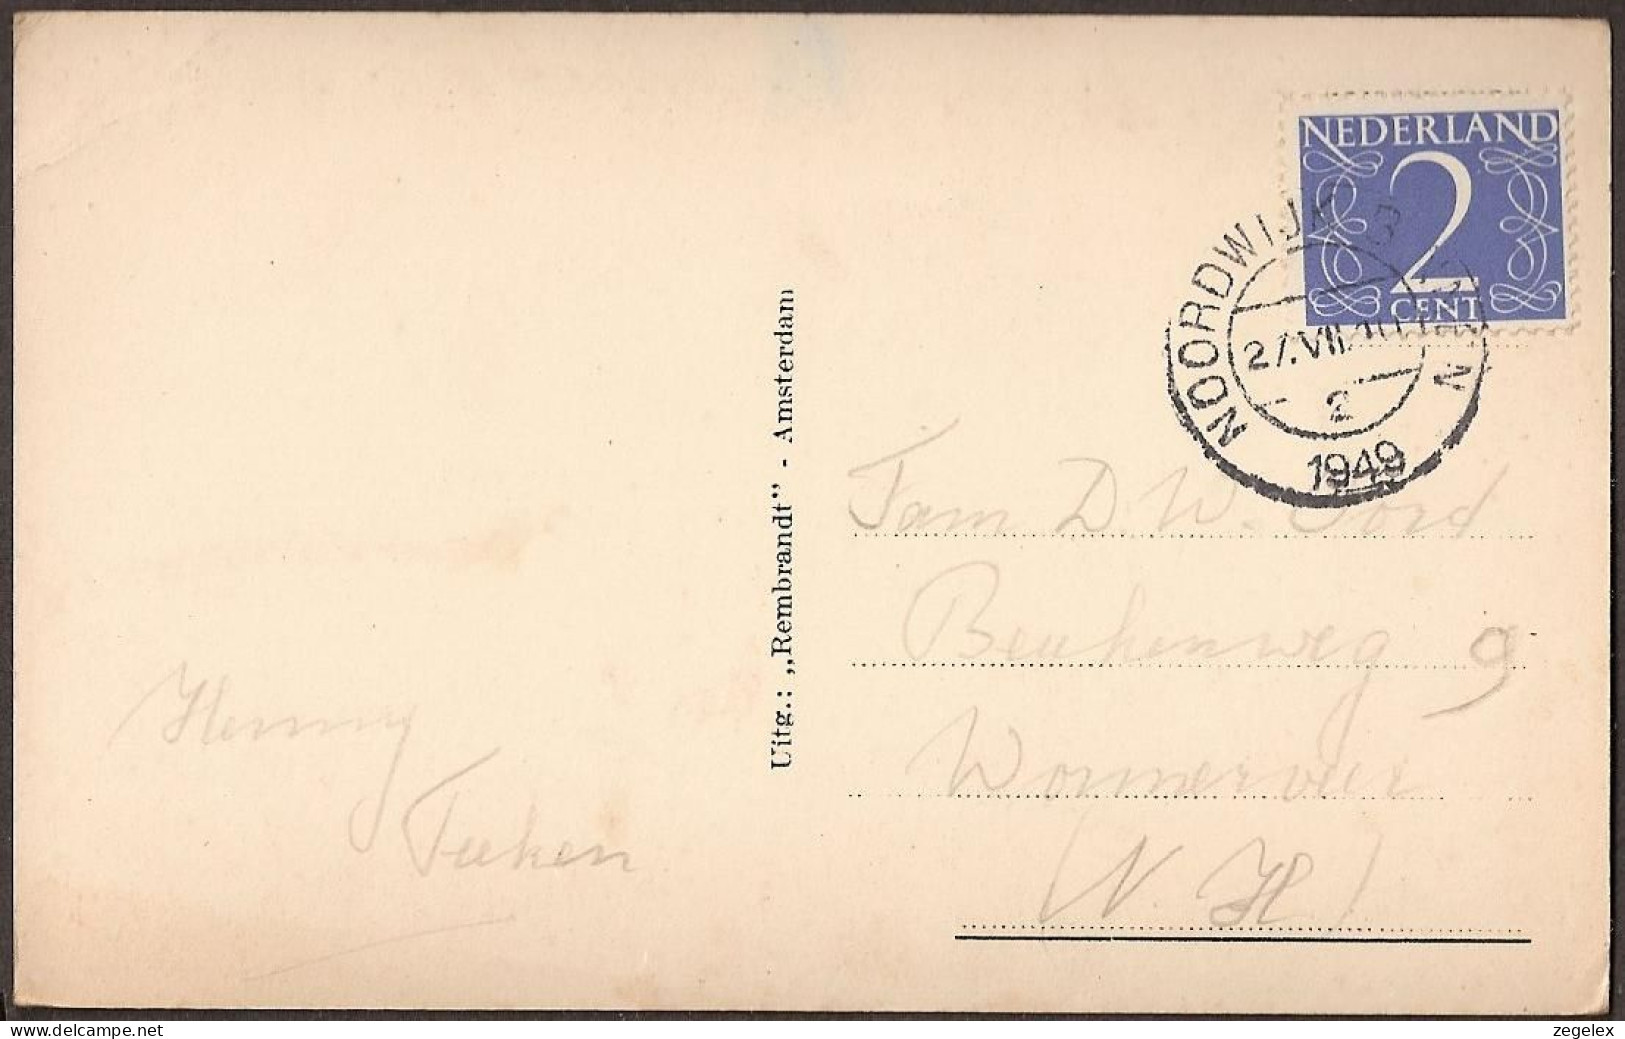 NEDERLAND
2
CENT
NOORDWIJK
27.VII
2
1949
Uitg.: „Rembrandt” - Amsterdam
Fam D.W.
Beukenweg 9
Wormerveer
(N.H)
Henny
Teeken
www.delcampe.net
zegelex